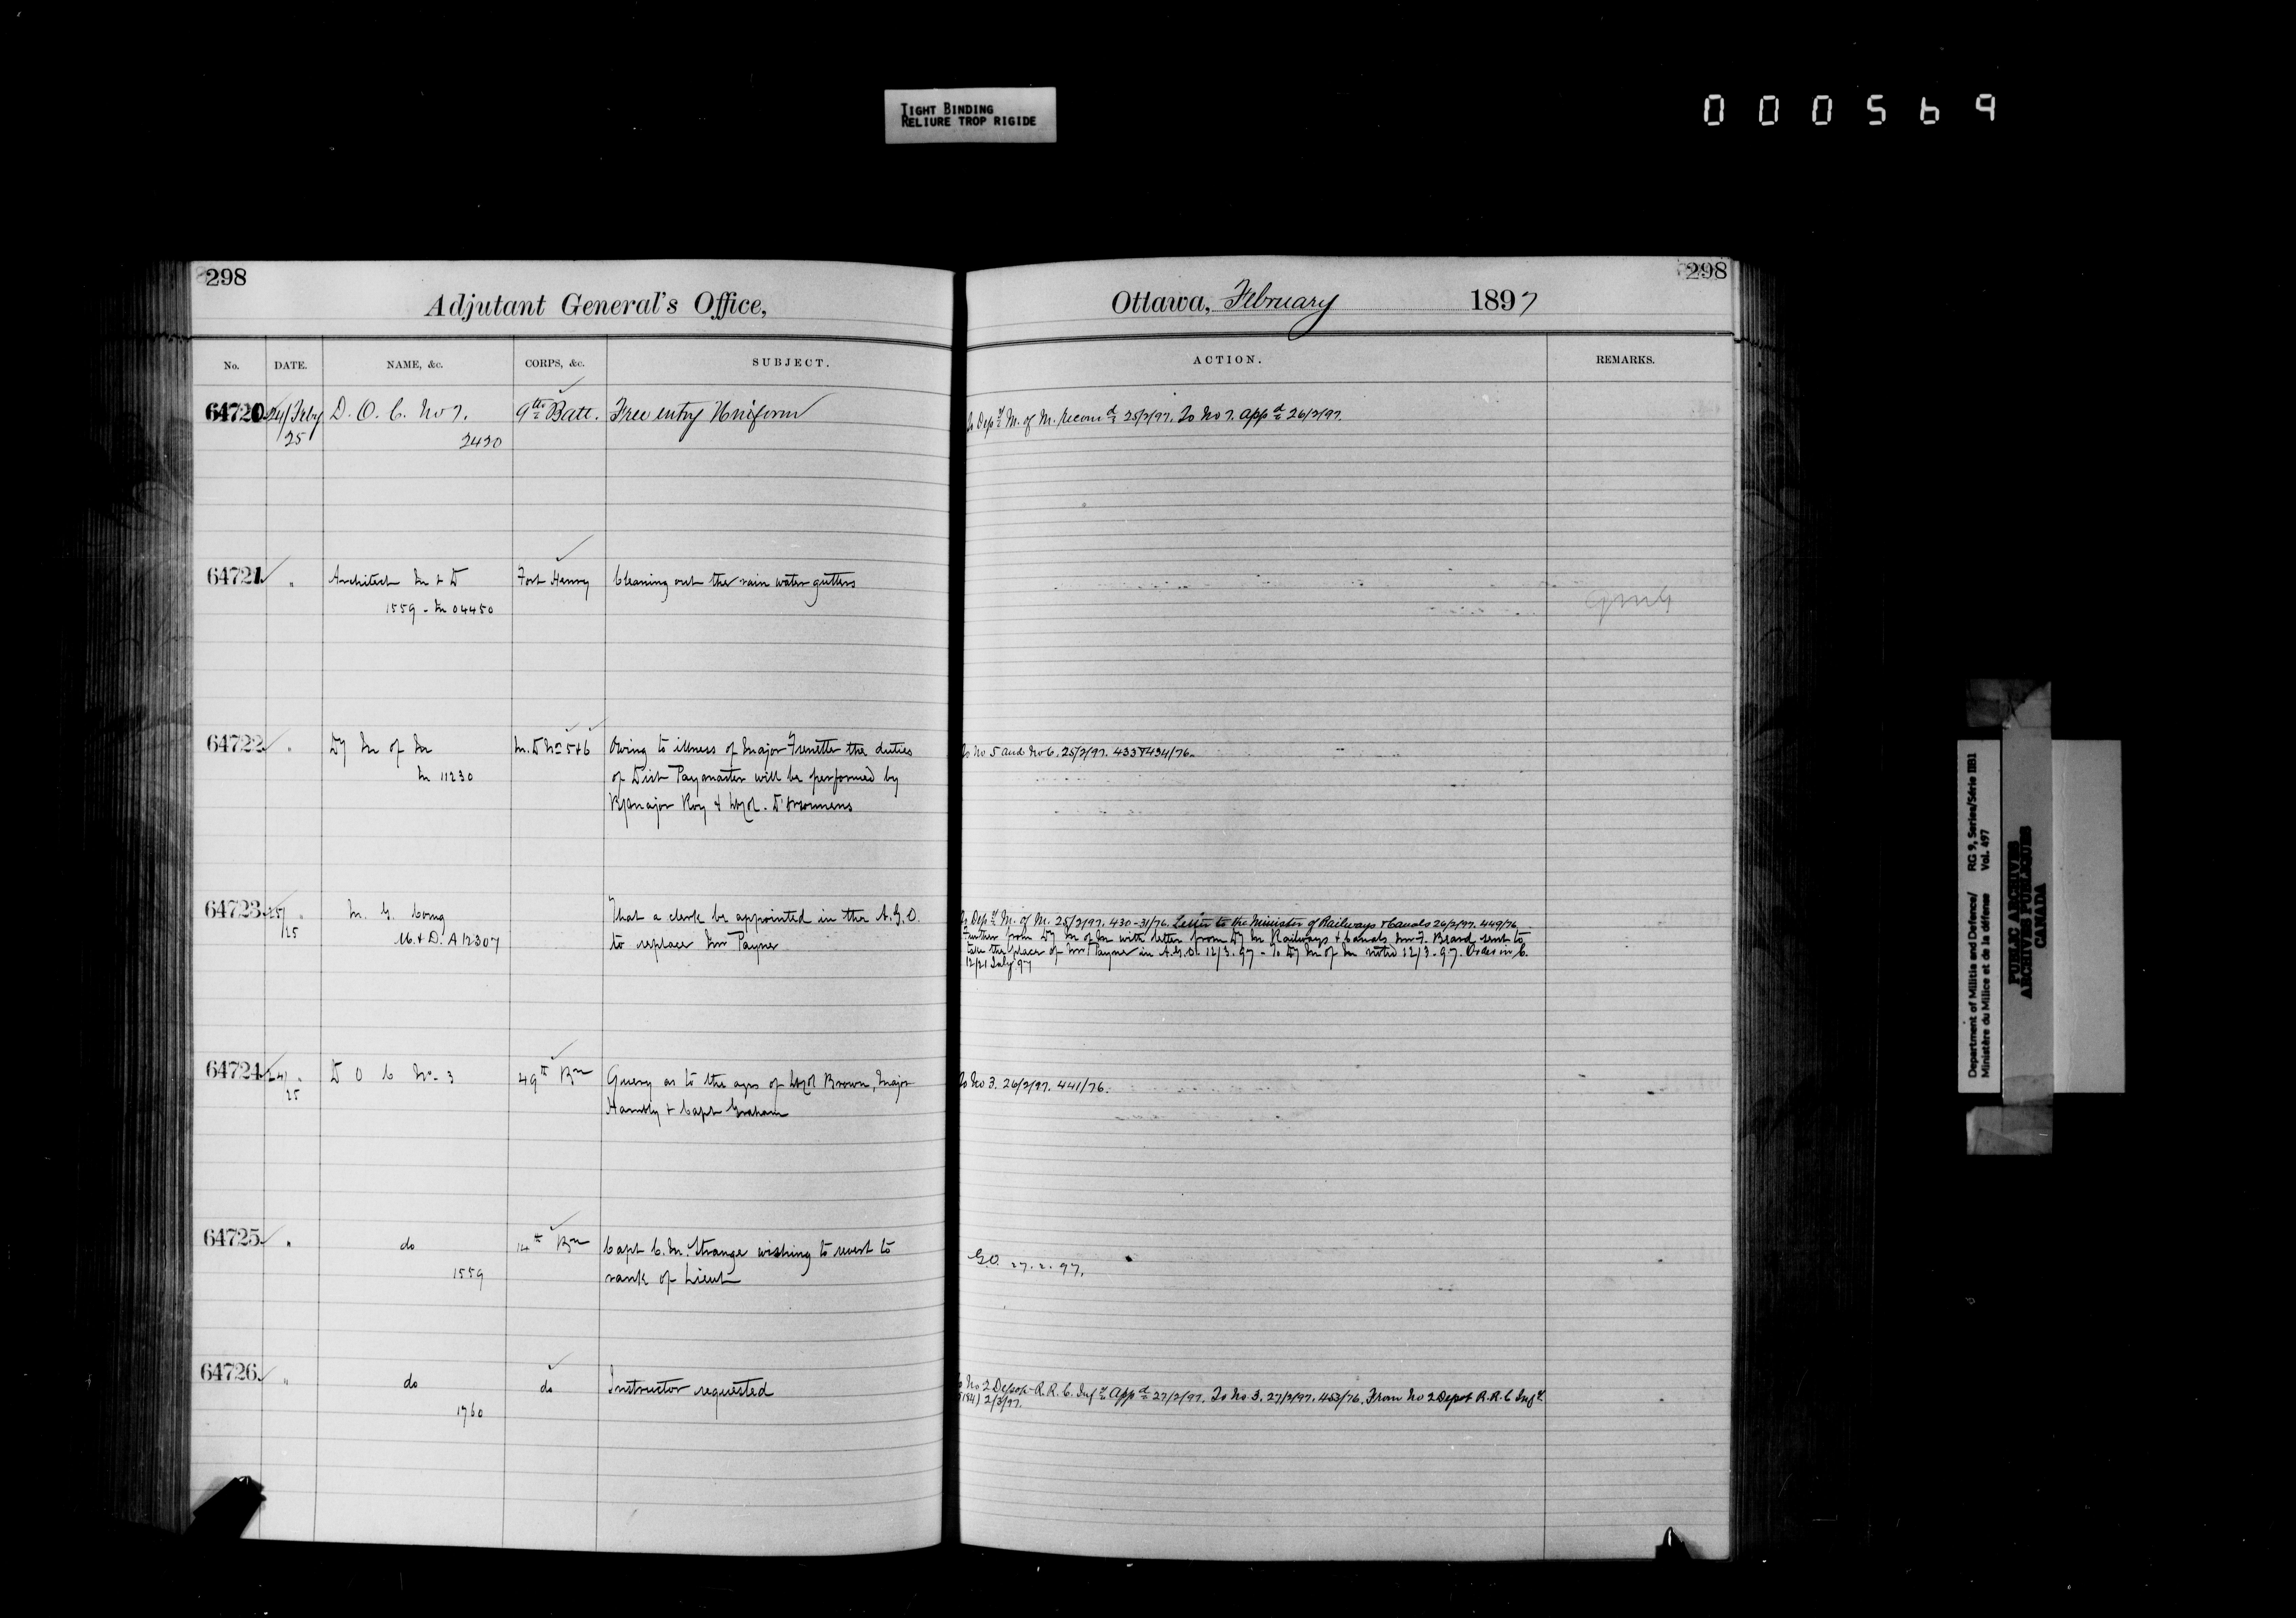 TIGHT BINDING
RELIURE TROP RIGIDE
000569
298
Adjutant General's Office,
No. DATE. NAME, &c. CORPS, &c. SUBJECT.
64720 24/Feby D. O. C. No 7. 9th Batt. Free entry Uniform
25 2420
64721 " Architect M & D Fort Henry Cleaning out the rain water gutters
1559 - M 04450
64722 " Dy M of M M. D No 5 & 6 Owing to illness of Major Frenette the duties
M 11230 of Dist Paymaster will be performed by
Major Roy & D'Orsonnens
64723 25/ " M. G. Comg That a clerk be appointed in the A.G.O.
25 M. & D. A 12307 to replace Mr Payne
64724 24/ " D O C No. 3 49th Bn Query as to the ages of Brown, Major
25 Hambly & Capt Graham
64725 " do 14th Bn Capt C. M. Strange wishing to revert to
1559 rank of Lieut
64726 " do do Instructor requested
1760
298
Ottawa, February 1897
ACTION. REMARKS.
To Depy M. of M. Recomd 25/2/97. To No 7. Appd 26/2/97.
To No 5 and No 6. 25/2/97. 433 & 434/76.
To Depy M. of M. 25/2/97. 430-31/76. Letter to the Minister of Railways & Canals 26/2/97. 449/76
Further from Dy M of M with letter from Dy M Railways & Canals Mr F. Beard sent to
take the place of Mr Payne in A.G.O. 12/3.97 - To Dy M of M noted 12/3.97. in C.
12/21 July 97
To No 3. 26/2/97. 441/76.
G.O. 27.2.97.
To No 2 Depot R.R.C. Infy Appd 27/2/97. To No 3. 27/2/97. 453/76. From No 2 Depot R.R.C Infy
2/3/97.
Department of Militia and Defence/ RG 9, Series/Série IIB1
Ministère du Milice et de la défense Vol. 497
PUBLIC ARCHIVES
ARCHIVES PUBLIQUES
CANADA